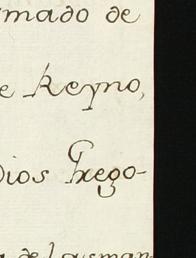 rmado de
e Reyno,
Dios Grego-
a de Guzman